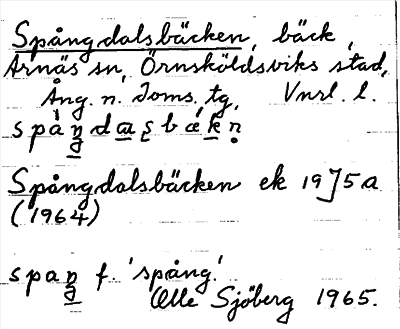 Spångdalsbäcken, bäck,
Arnäs sn, Örnsköldsviks stad,
Ång. n. Doms. tg, Vnrl. l.
Spångdalsbäcken ek 19J5a
(1964)
span̥g f. 'spång'.
Olle Sjöberg 1965.